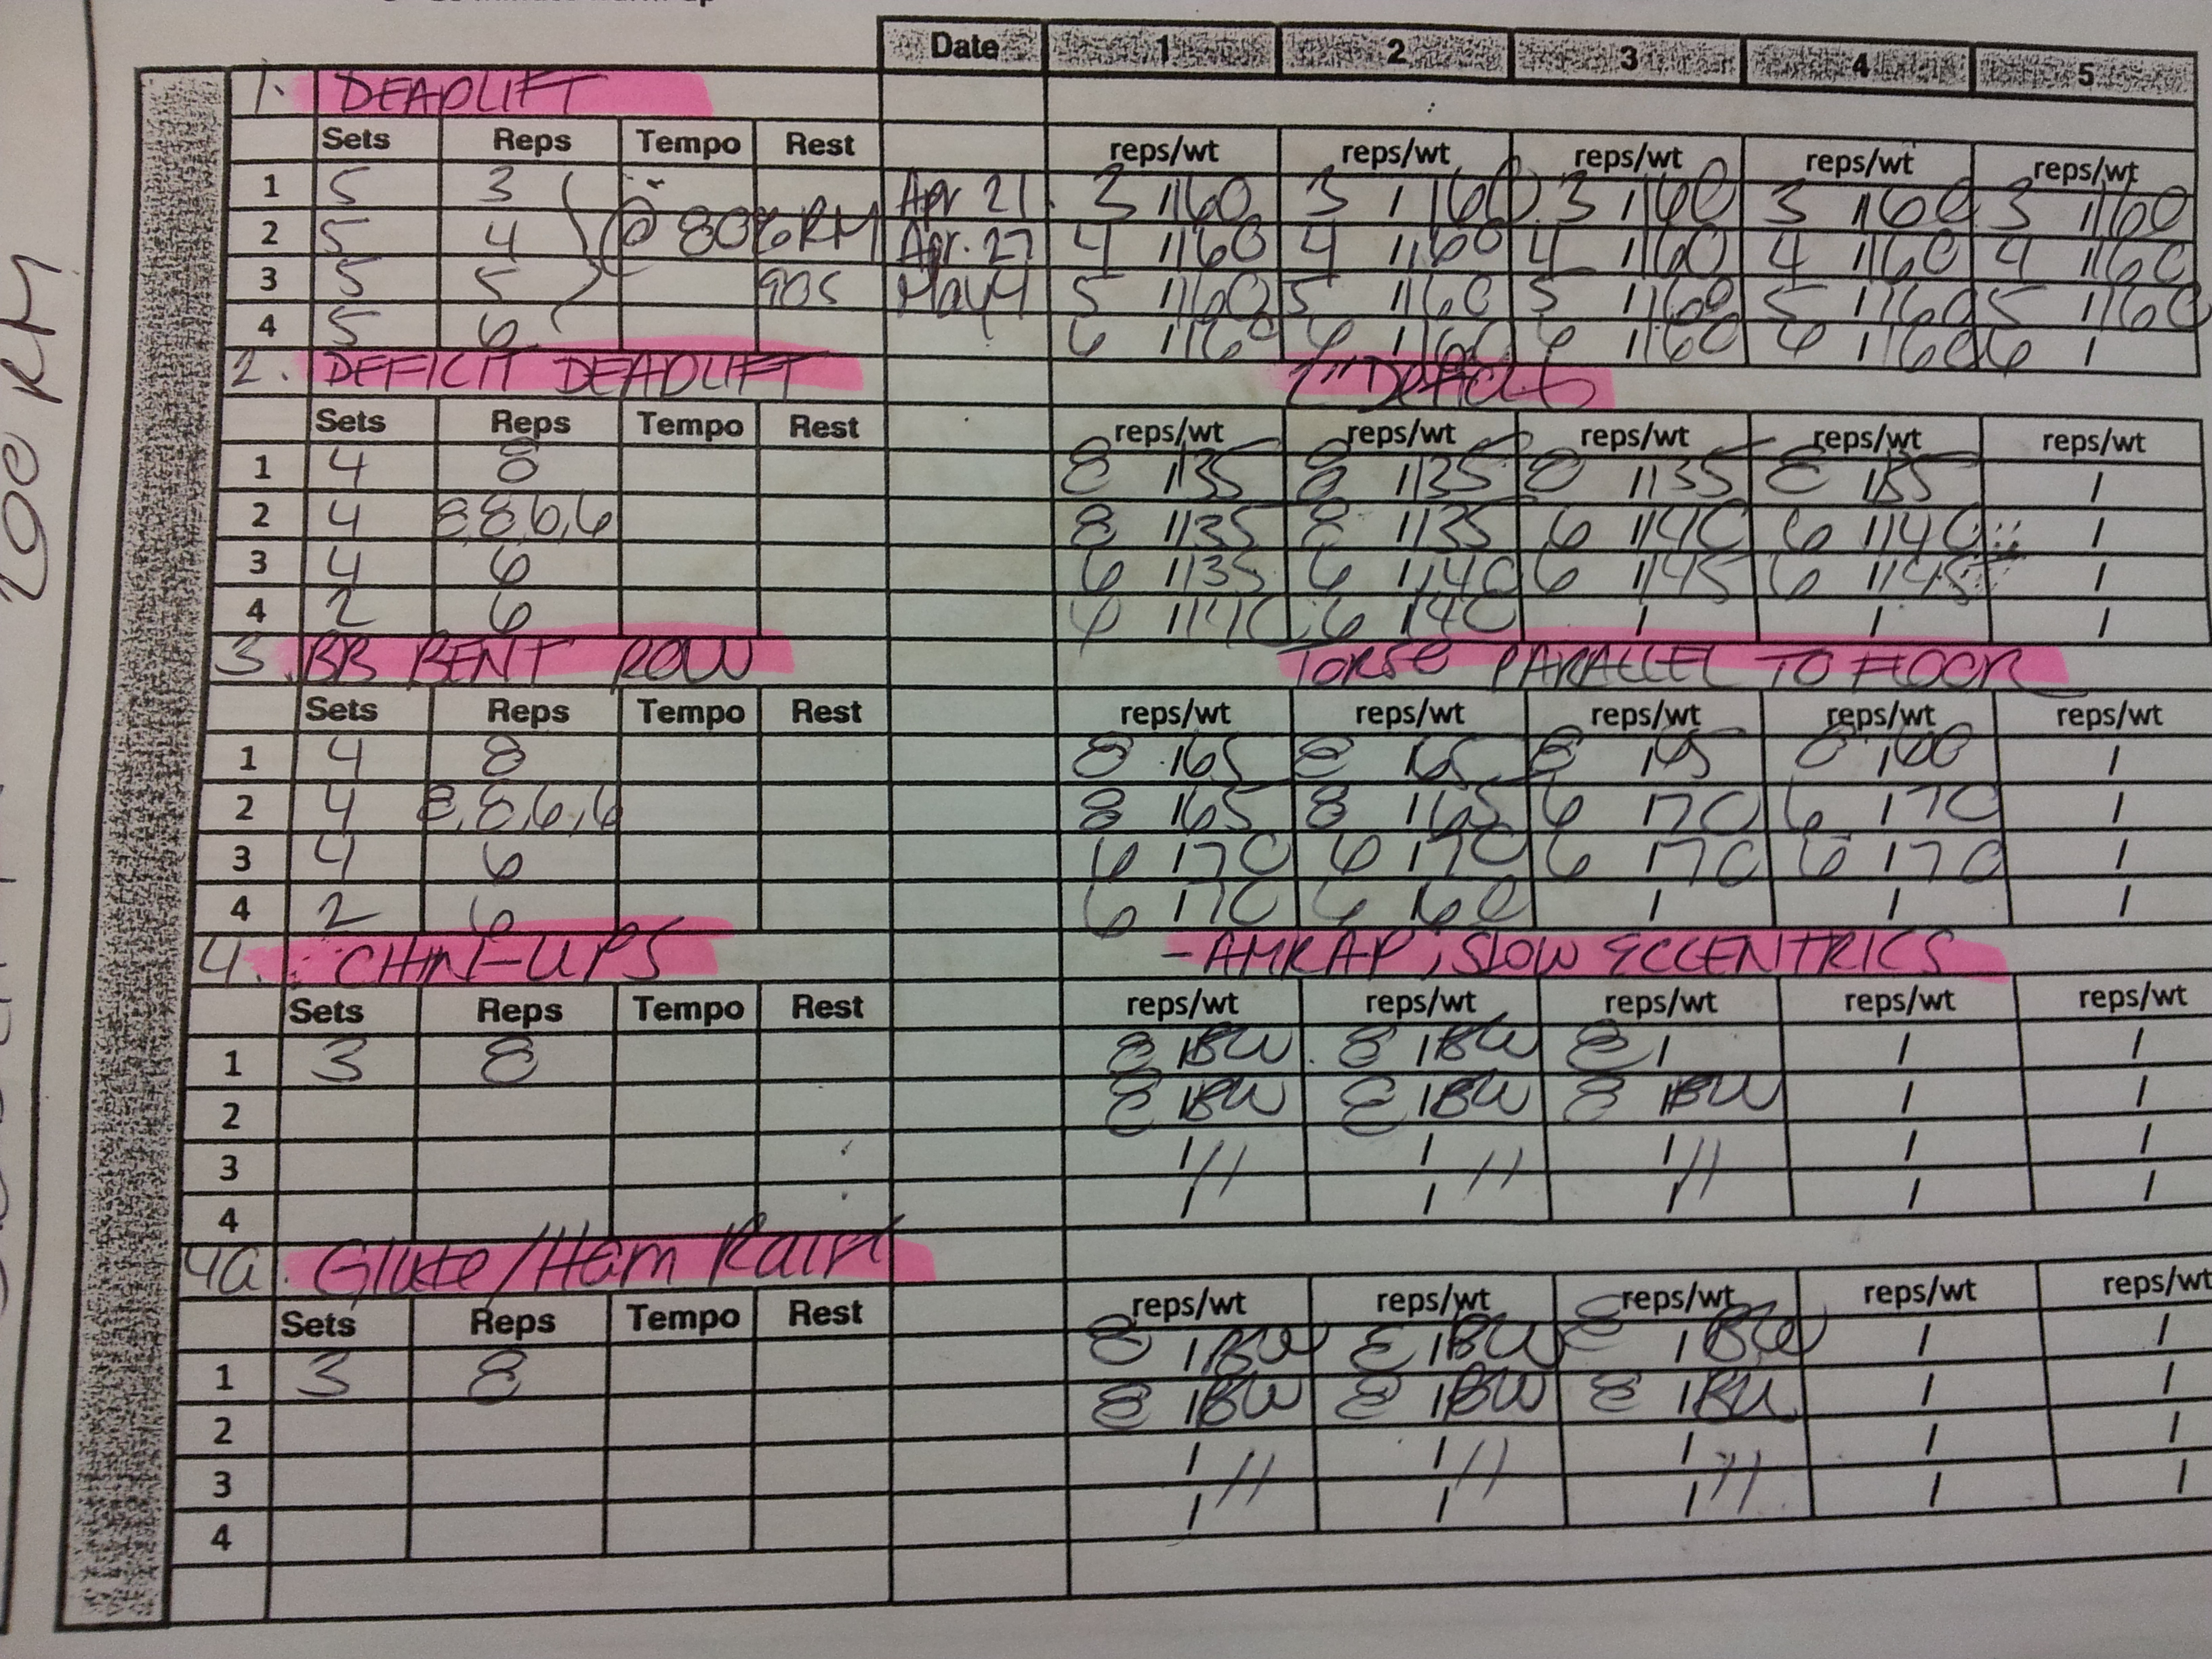 Date 1 2 3 4 5
1. DEADLIFT
Sets Reps Tempo Rest reps/wt reps/wt reps/wt reps/wt reps/wt
1 5 3 @ 80% RM Apr 21 3 /160 3 /160 3 /160 3 /160 3 /160
2 5 4 Apr. 27 4 /160 4 /160 4 /160 4 /160 4 /160
3 5 5 90s May 4 5 /160 5 /160 5 /160 5 /160 5 /160
4 5 6 6 /160 6 /160 6 /160 6 /160 6 /
2. DEFICIT DEADLIFT
Sets Reps Tempo Rest reps/wt reps/wt reps/wt reps/wt reps/wt
1 4 8 8 /135 8 /135 8 /135 8 /135 /
2 4 8,8,6,6 8 /135 8 /135 6 /140 6 /140 /
3 4 6 6 /135 6 /140 6 /145 6 /145 /
4 2 6 6 /140 6 /140 / / /
3. BB BENT ROW TORSO PARALLEL TO FLOOR
Sets Reps Tempo Rest reps/wt reps/wt reps/wt reps/wt reps/wt
1 4 8 8 /65 8 /65 8 /65 8 /60 /
2 4 8,8,6,6 8 /65 8 /65 6 /70 6 /70 /
3 4 6 6 /70 6 /70 6 /70 6 /70 /
4 2 6 6 /70 6 /60 / / /
4. CHIN-UPS - AMRAP, SLOW ECCENTRICS
Sets Reps Tempo Rest reps/wt reps/wt reps/wt reps/wt reps/wt
1 3 8 8 /BW 8 /BW 8 / / /
2 8 /BW 8 /BW 8 /BW / /
3 / // / // / // / /
4 / / / / /
4a. Glute/Ham Raise
Sets Reps Tempo Rest reps/wt reps/wt reps/wt reps/wt reps/wt
1 3 8 8 /BW 8 /BW 8 /BW / /
2 8 /BW 8 /BW 8 /BW / /
3 / // / // / // / /
4 / / / / /
200 RM